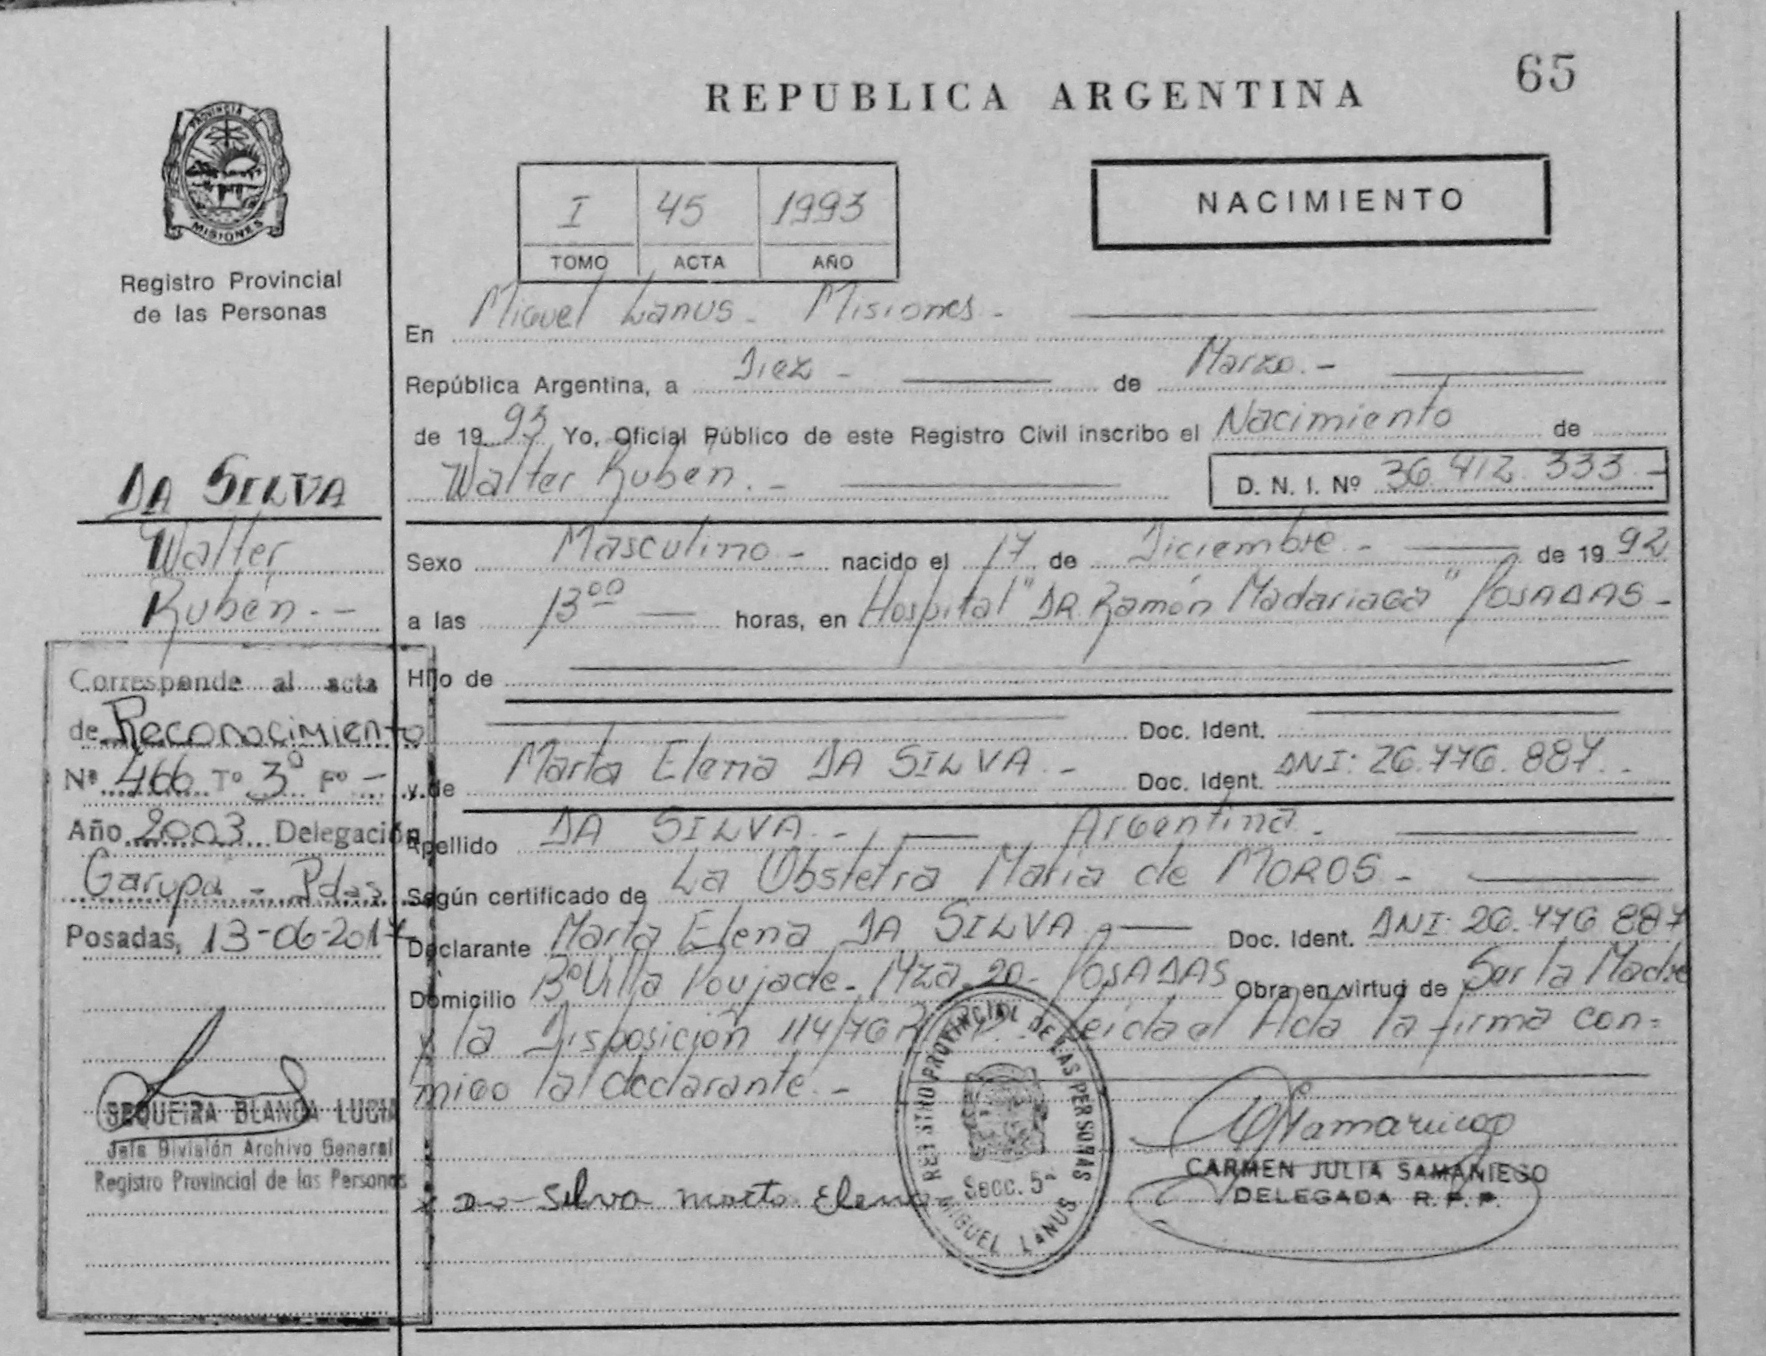 65
REPUBLICA ARGENTINA
PROVINCIA DE
MISIONES
Registro Provincial
de las Personas
I 45 1993
TOMO ACTA AÑO
NACIMIENTO
En Miguel Lanus - Misiones -
República Argentina, a Diez - de Marzo. -
de 1993 Yo, Oficial Público de este Registro Civil inscribo el Nacimiento de
Walter Rubén. - D. N. I. Nº 36.412.333 -
Sexo Masculino - nacido el 17 de Diciembre - de 1992
a las 13⁰⁰ horas, en Hospital "DR. Ramón Madariaga" POSADAS -
Hijo de
Doc. Ident.
y de Marta Elena DA SILVA - Doc. Ident. DNI: 26.776.887. -
Apellido DA SILVA. - Argentina -
Según certificado de La Obstetra María de MOROS -
Declarante Marta Elena DA SILVA - Doc. Ident. DNI: 26.776.887
Domicilio Bº Villa Poujade - Mza. 20 - POSADAS Obra en virtud de Ser la Madre
y la Disposición 114/76 Leida el Acta la firma con=
migo la declarante. -
x Da Silva Marta Elena
REGISTRO PROVINCIAL DE LAS PERSONAS
SECC. 5ª
MIGUEL LANUS
CARMEN JULIA SAMANIEGO
DELEGADA R.P.P.
DA SILVA
Walter
Rubén. -
Corresponde al acta
de Reconocimiento
Nº 466 Tº 3º Fº -
Año 2003 Delegación
Garupa - Pdas
Posadas, 13-06-2017
SEQUEIRA BLANCA LUCIA
Jefa División Archivo General
Registro Provincial de las Personas